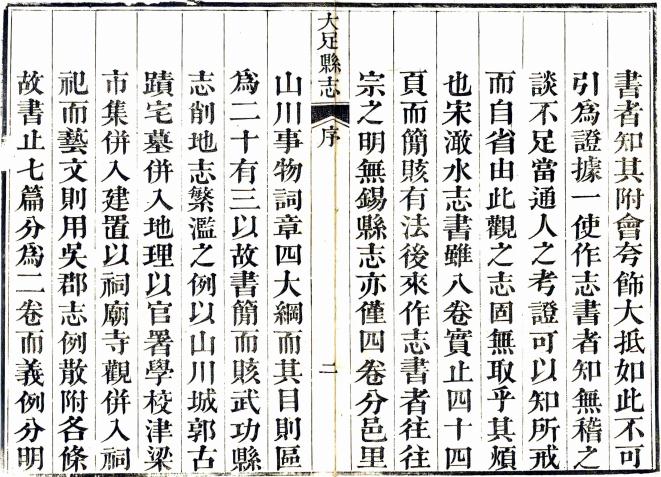 書者知其附會夸飾大抵如此不可
引為證據一使作志書者知無稽之
談不足當通人之考證可以知所戒
而自省由此觀之志固無取乎其煩
也宋澉水志書雖八卷實止四十四
頁而簡賅有法後來作志書者往往
宗之明無錫縣志亦僅四卷分邑里
大足縣志
序
二
山川事物詞章四大綱而其目則區
為二十有三以故書簡而賅武功縣
志削地志繁濫之例以山川城郭古
蹟宅墓併入地理以官署學校津梁
市集併入建置以祠廟寺觀併入祠
祀而藝文則用吳郡志例散附各條
故書止七篇分為二卷而義例分明